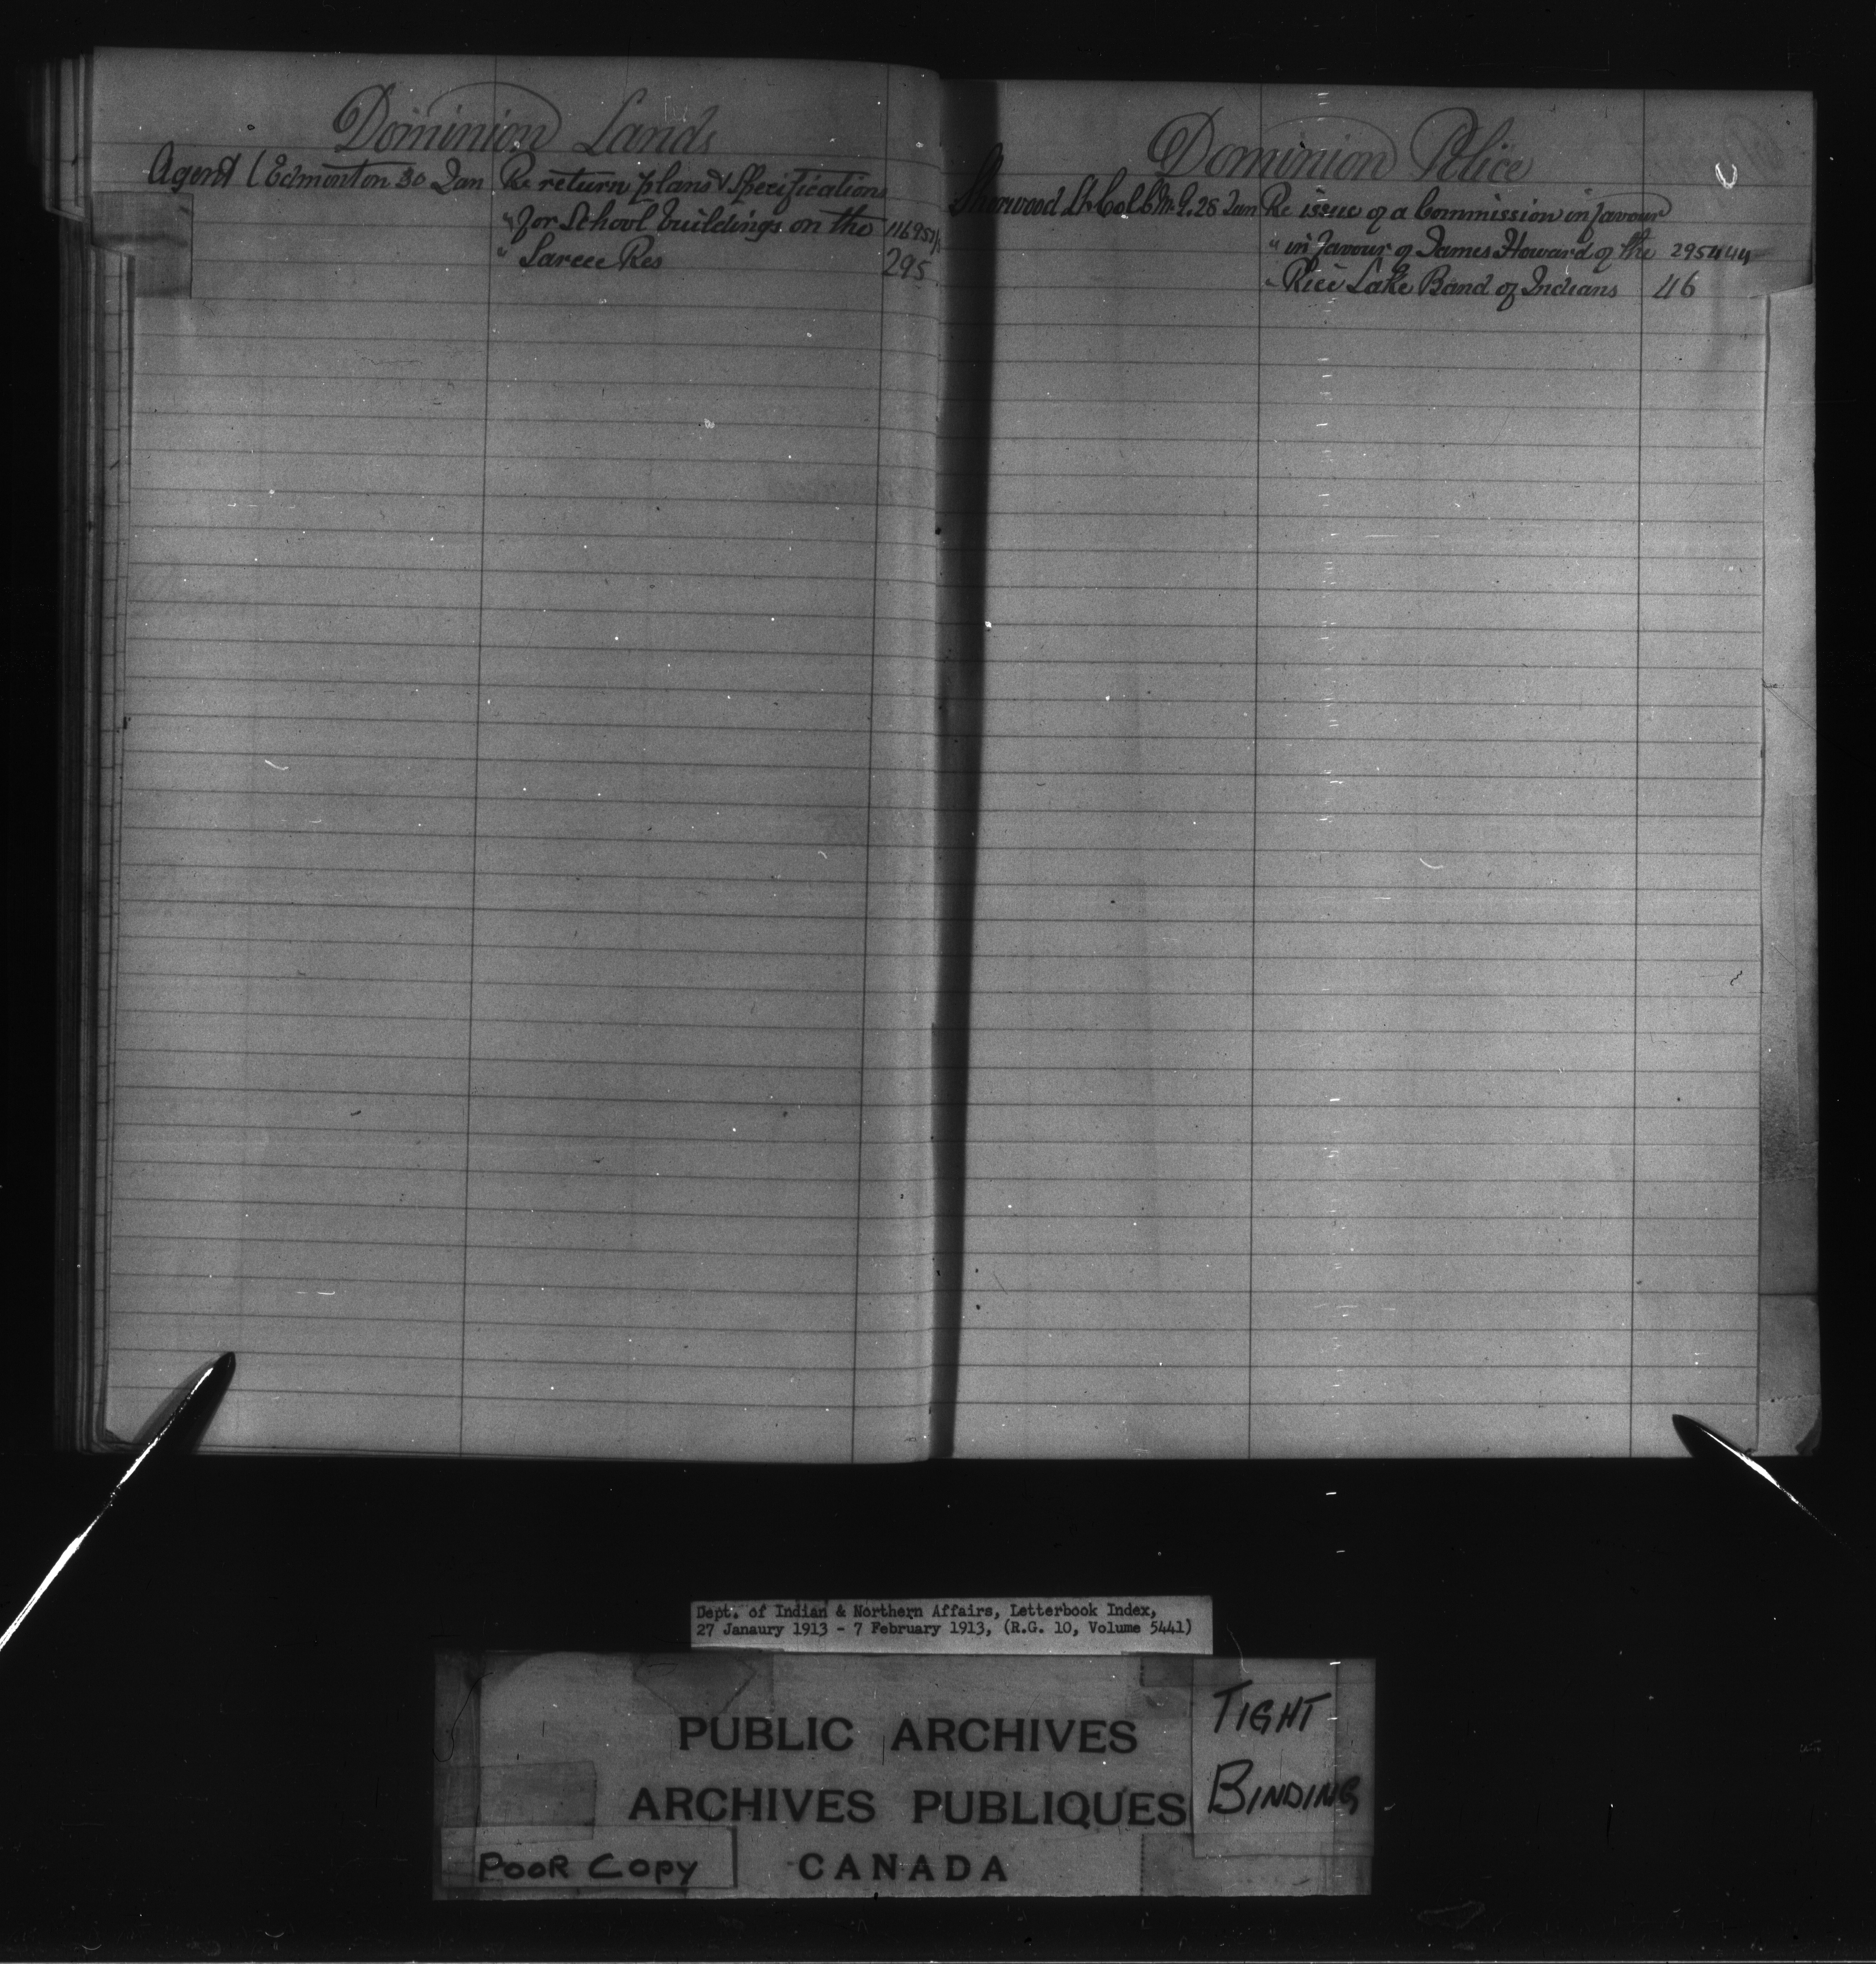 Dominion Lands
Agent (Edmonton 30 Jan Re return plans & Specifications
" for School buildings on the 116957/1
" Sarcee Res 295
Dominion Police
Sherwood Lt. Col. C.M.G. 28 Jan Re issue of a Commission in favour
" in favour of James Howard of the 295444
" Rice Lake Band of Indians 46
Dept. of Indian & Northern Affairs, Letterbook Index,
27 Janaury 1913 - 7 February 1913, (R.G. 10, Volume 5441)
PUBLIC ARCHIVES
ARCHIVES PUBLIQUES
CANADA
TIGHT
BINDING
POOR COPY